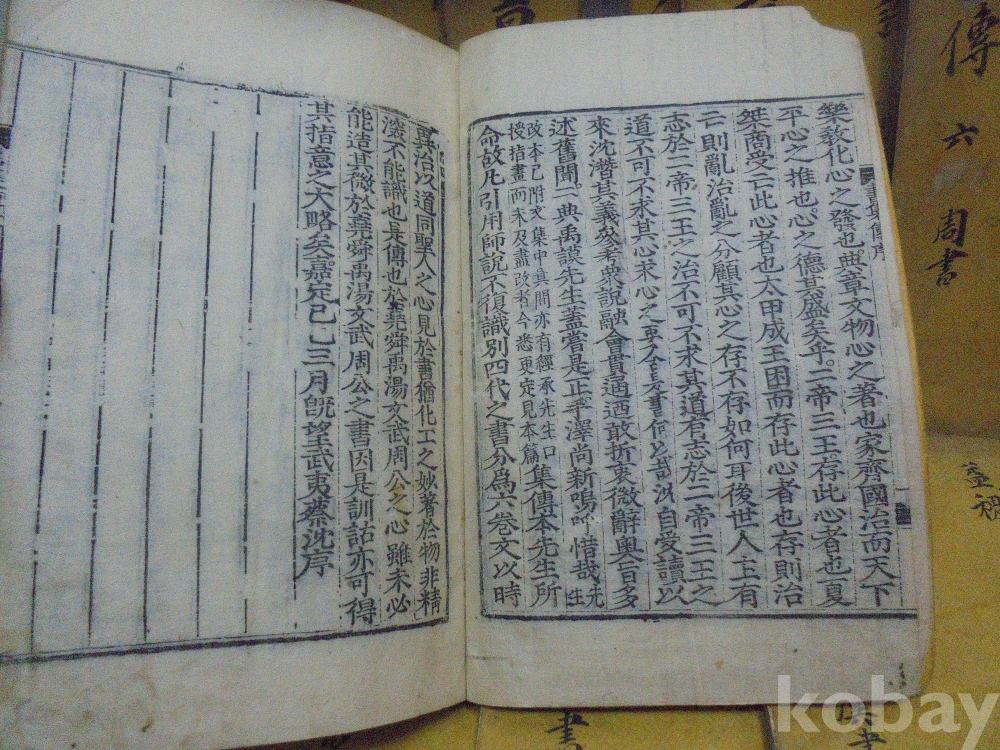 樂敎化心之發也典章文物心之著也家齊國治而天下
平心之推也心之德其盛矣乎二帝三王存此心者也夏
桀商受亡此心者也太甲成王困而存此心者也存則治
亡則亂治亂之分顧其心之存不存如何耳後世人主有
志於二帝三王之治不可不求其道有志於二帝三王之
道不可不求其心求心之要舍是書何以哉沈自受讀以
來沈潛其義參考衆說融會貫通迺敢折衷微辭奧旨多
述舊聞二典禹謨先生蓋嘗是正手澤尚新嗚呼惜哉先生
改本已附文集中其間亦有經承先生口
授指畫而未及盡改者今悉更定見本篇
集傳本先生所
命故凡引用師說不復識別四代之書分爲六卷文以時
異治以道同聖人之心見於書猶化工之妙著於物非精
深不能識也是傳也於堯舜禹湯文武周公之心雖未必
能造其微於堯舜禹湯文武周公之書因是訓詁亦可得
其指意之大略矣嘉定己巳三月旣望武夷蔡沈序
書集傳序
傳 六 周書
書
kobay